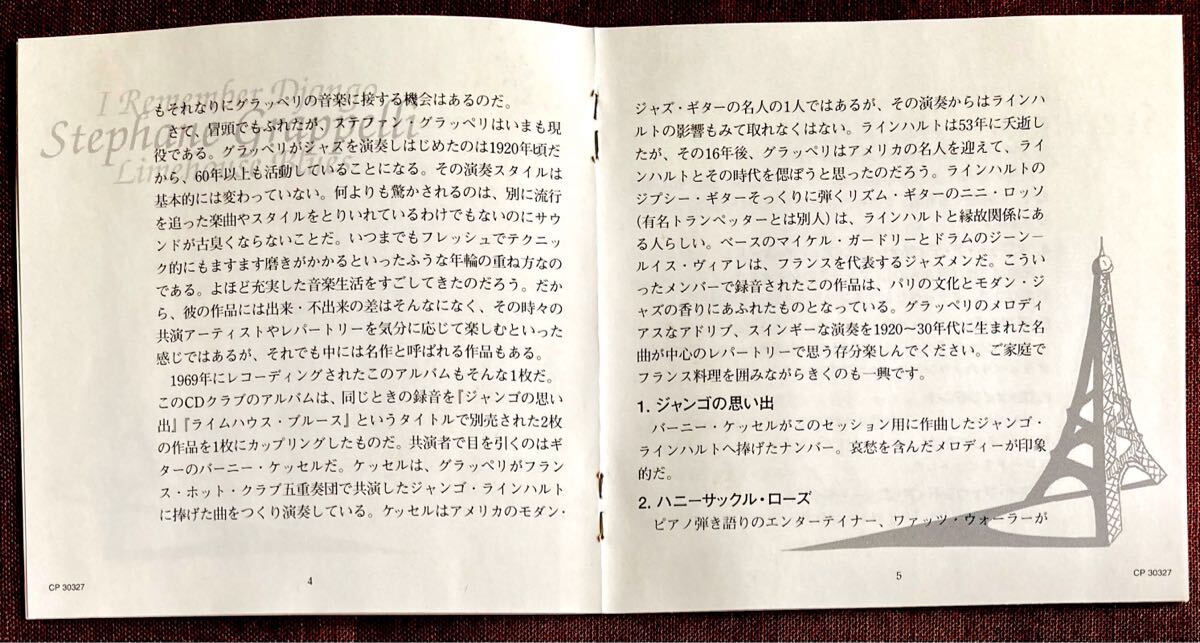 I Remember Django
Stephane Grappelli
Limehouse Blues
もそれなりにグラッペリの音楽に接する機会はあるのだ。
さて、冒頭でもふれたが、ステファン・グラッペリはいまも現
役である。グラッペリがジャズを演奏しはじめたのは1920年頃だ
から、60年以上も活動していることになる。その演奏スタイルは
基本的には変わっていない。何よりも驚かされるのは、別に流行
を追った楽曲やスタイルをとりいれているわけでもないのにサウ
ンドが古臭くならないことだ。いつまでもフレッシュでテクニッ
ク的にもますます磨きがかかるといったふうな年輪の重ね方なの
である。よほど充実した音楽生活をすごしてきたのだろう。だか
ら、彼の作品には出来・不出来の差はそんなになく、その時々の
共演アーティストやレパートリーを気分に応じて楽しむといった
感じではあるが、それでも中には名作と呼ばれる作品もある。
1969年にレコーディングされたこのアルバムもそんな1枚だ。
このCDクラブのアルバムは、同じときの録音を『ジャンゴの思い
出』『ライムハウス・ブルース』というタイトルで別売された2枚
の作品を1枚にカップリングしたものだ。共演者で目を引くのはギ
ターのバーニー・ケッセルだ。ケッセルは、グラッペリがフラン
ス・ホット・クラブ五重奏団で共演したジャンゴ・ラインハルト
に捧げた曲をつくり演奏している。ケッセルはアメリカのモダン・
4
CP 30327
ジャズ・ギターの名人の1人ではあるが、その演奏からはラインハ
ルトの影響もみて取れなくはない。ラインハルトは53年に夭逝し
たが、その16年後、グラッペリはアメリカの名人を迎えて、ライ
ンハルトとその時代を偲ぼうと思ったのだろう。ラインハルトの
ジプシー・ギターそっくりに弾くリズム・ギターのニニ・ロッソ
(有名トランペッターとは別人)は、ラインハルトと縁故関係にあ
る人らしい。ベースのマイケル・ガードリーとドラムのジーン―
ルイス・ヴィアレは、フランスを代表するジャズメンだ。こうい
ったメンバーで録音されたこの作品は、パリの文化とモダン・ジ
ャズの香りにあふれたものとなっている。グラッペリのメロディ
アスなアドリブ、スインギーな演奏を1920〜30年代に生まれた名
曲が中心のレパートリーで思う存分楽しんでください。ご家庭で
フランス料理を囲みながらきくのも一興です。
1. ジャンゴの思い出
バーニー・ケッセルがこのセッション用に作曲したジャンゴ・
ラインハルトへ捧げたナンバー。哀愁を含んだメロディーが印象
的だ。
2. ハニーサックル・ローズ
ピアノ弾き語りのエンターテイナー、ワァッツ・ウォーラーが
5
CP 30327